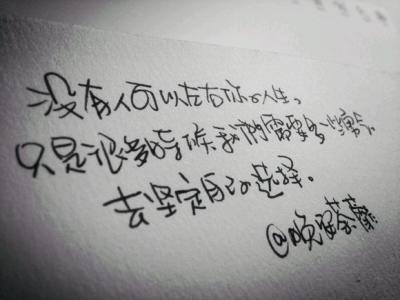 没有人可以左右你的人生。
只是很多时候我们需要多一些勇气
去坚定自己的选择。
@晚安荼蘼